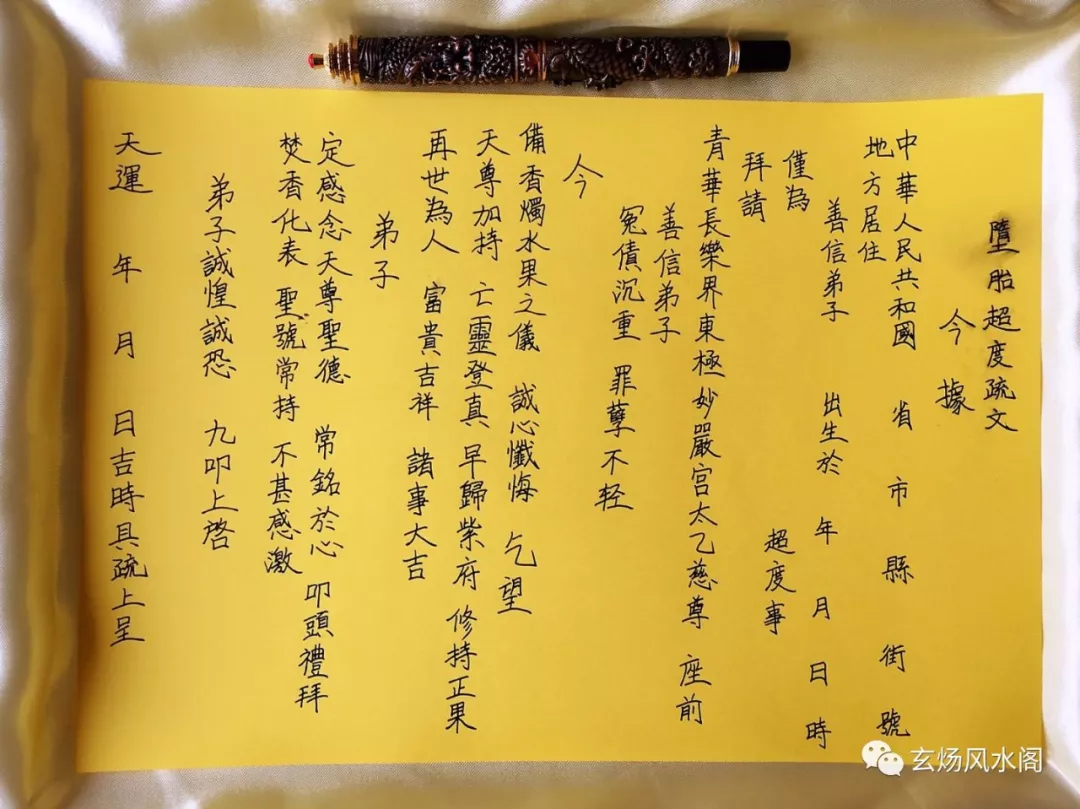 墮胎超度疏文
今據
中華人民共和國 省 市 縣 街 號
地方居住
善信弟子 出生於 年 月 日 時
僅為 超度事
拜請
青華長樂界東極妙嚴宮太乙慈尊 座前
善信弟子
冤債沉重 罪孽不轻
今
備香燭水果之儀 誠心懺悔 乞望
天尊加持 亡靈登真 早歸紫府 修持正果
再世為人 富貴吉祥 諸事大吉
弟子
定感念天尊聖德 常銘於心 叩頭禮拜
焚香化表 聖號常持 不甚感激
弟子誠惶誠恐 九叩上啓
天運 年 月 日吉時具疏上呈
玄炀风水阁